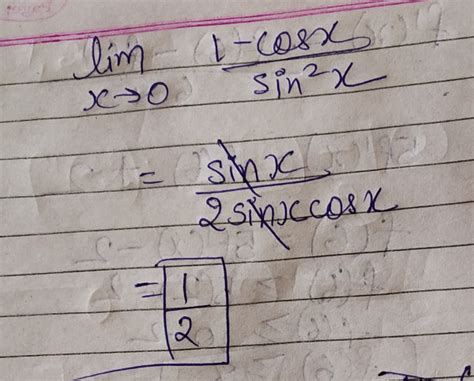 lim x→0 (1-cosx)/(sin²x)
= sinx/(2sinxcosx)
= 1/2